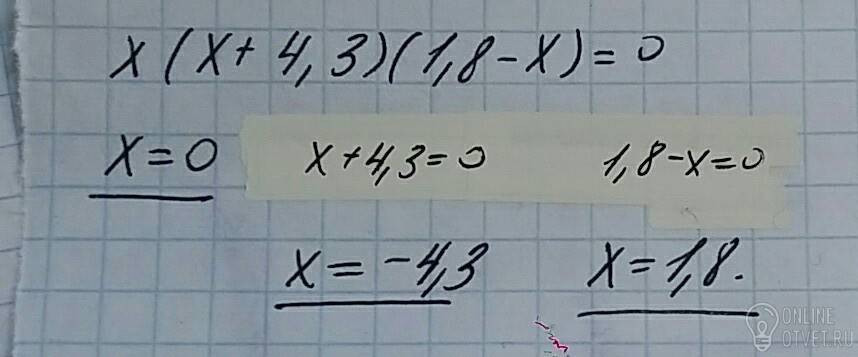 x(x+4,3)(1,8-x)=0
x=0 x+4,3=0 1,8-x=0
x=-4,3 x=1,8.
ONLINE
OTVET.RU